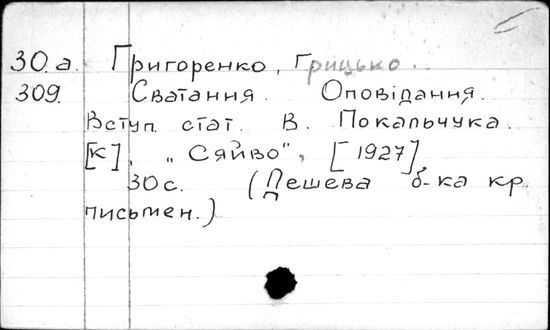 30.а. Григоренко, Грицько.
309. Сватання. Оповідання.
Вступ. стат. В. Покальчука.
[К], „Сяйво", [1927]
30с. (Дешева б-ка кр.
письмен.)